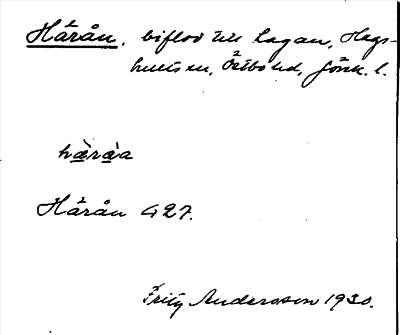 Härån, biflod till Lagan, Hags-
hults sn, Östbo hd, Jönk. l.
hæ̀ràa
Härån G27.
Fritz Andersson 1930.